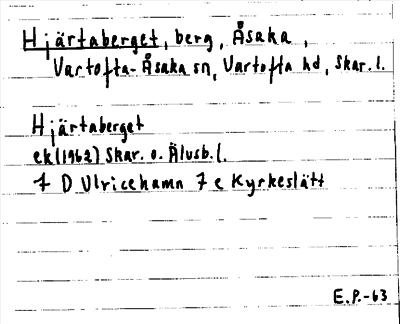 Hjärtaberget, berg, Åsaka,
Vartofta-Åsaka sn, Vartofta hd, Skar. l.
Hjärtaberget
ek (1962) Skar. o. Älvsb. l.
7 D Ulricehamn 7 e Kyrkeslätt
E.P.-63